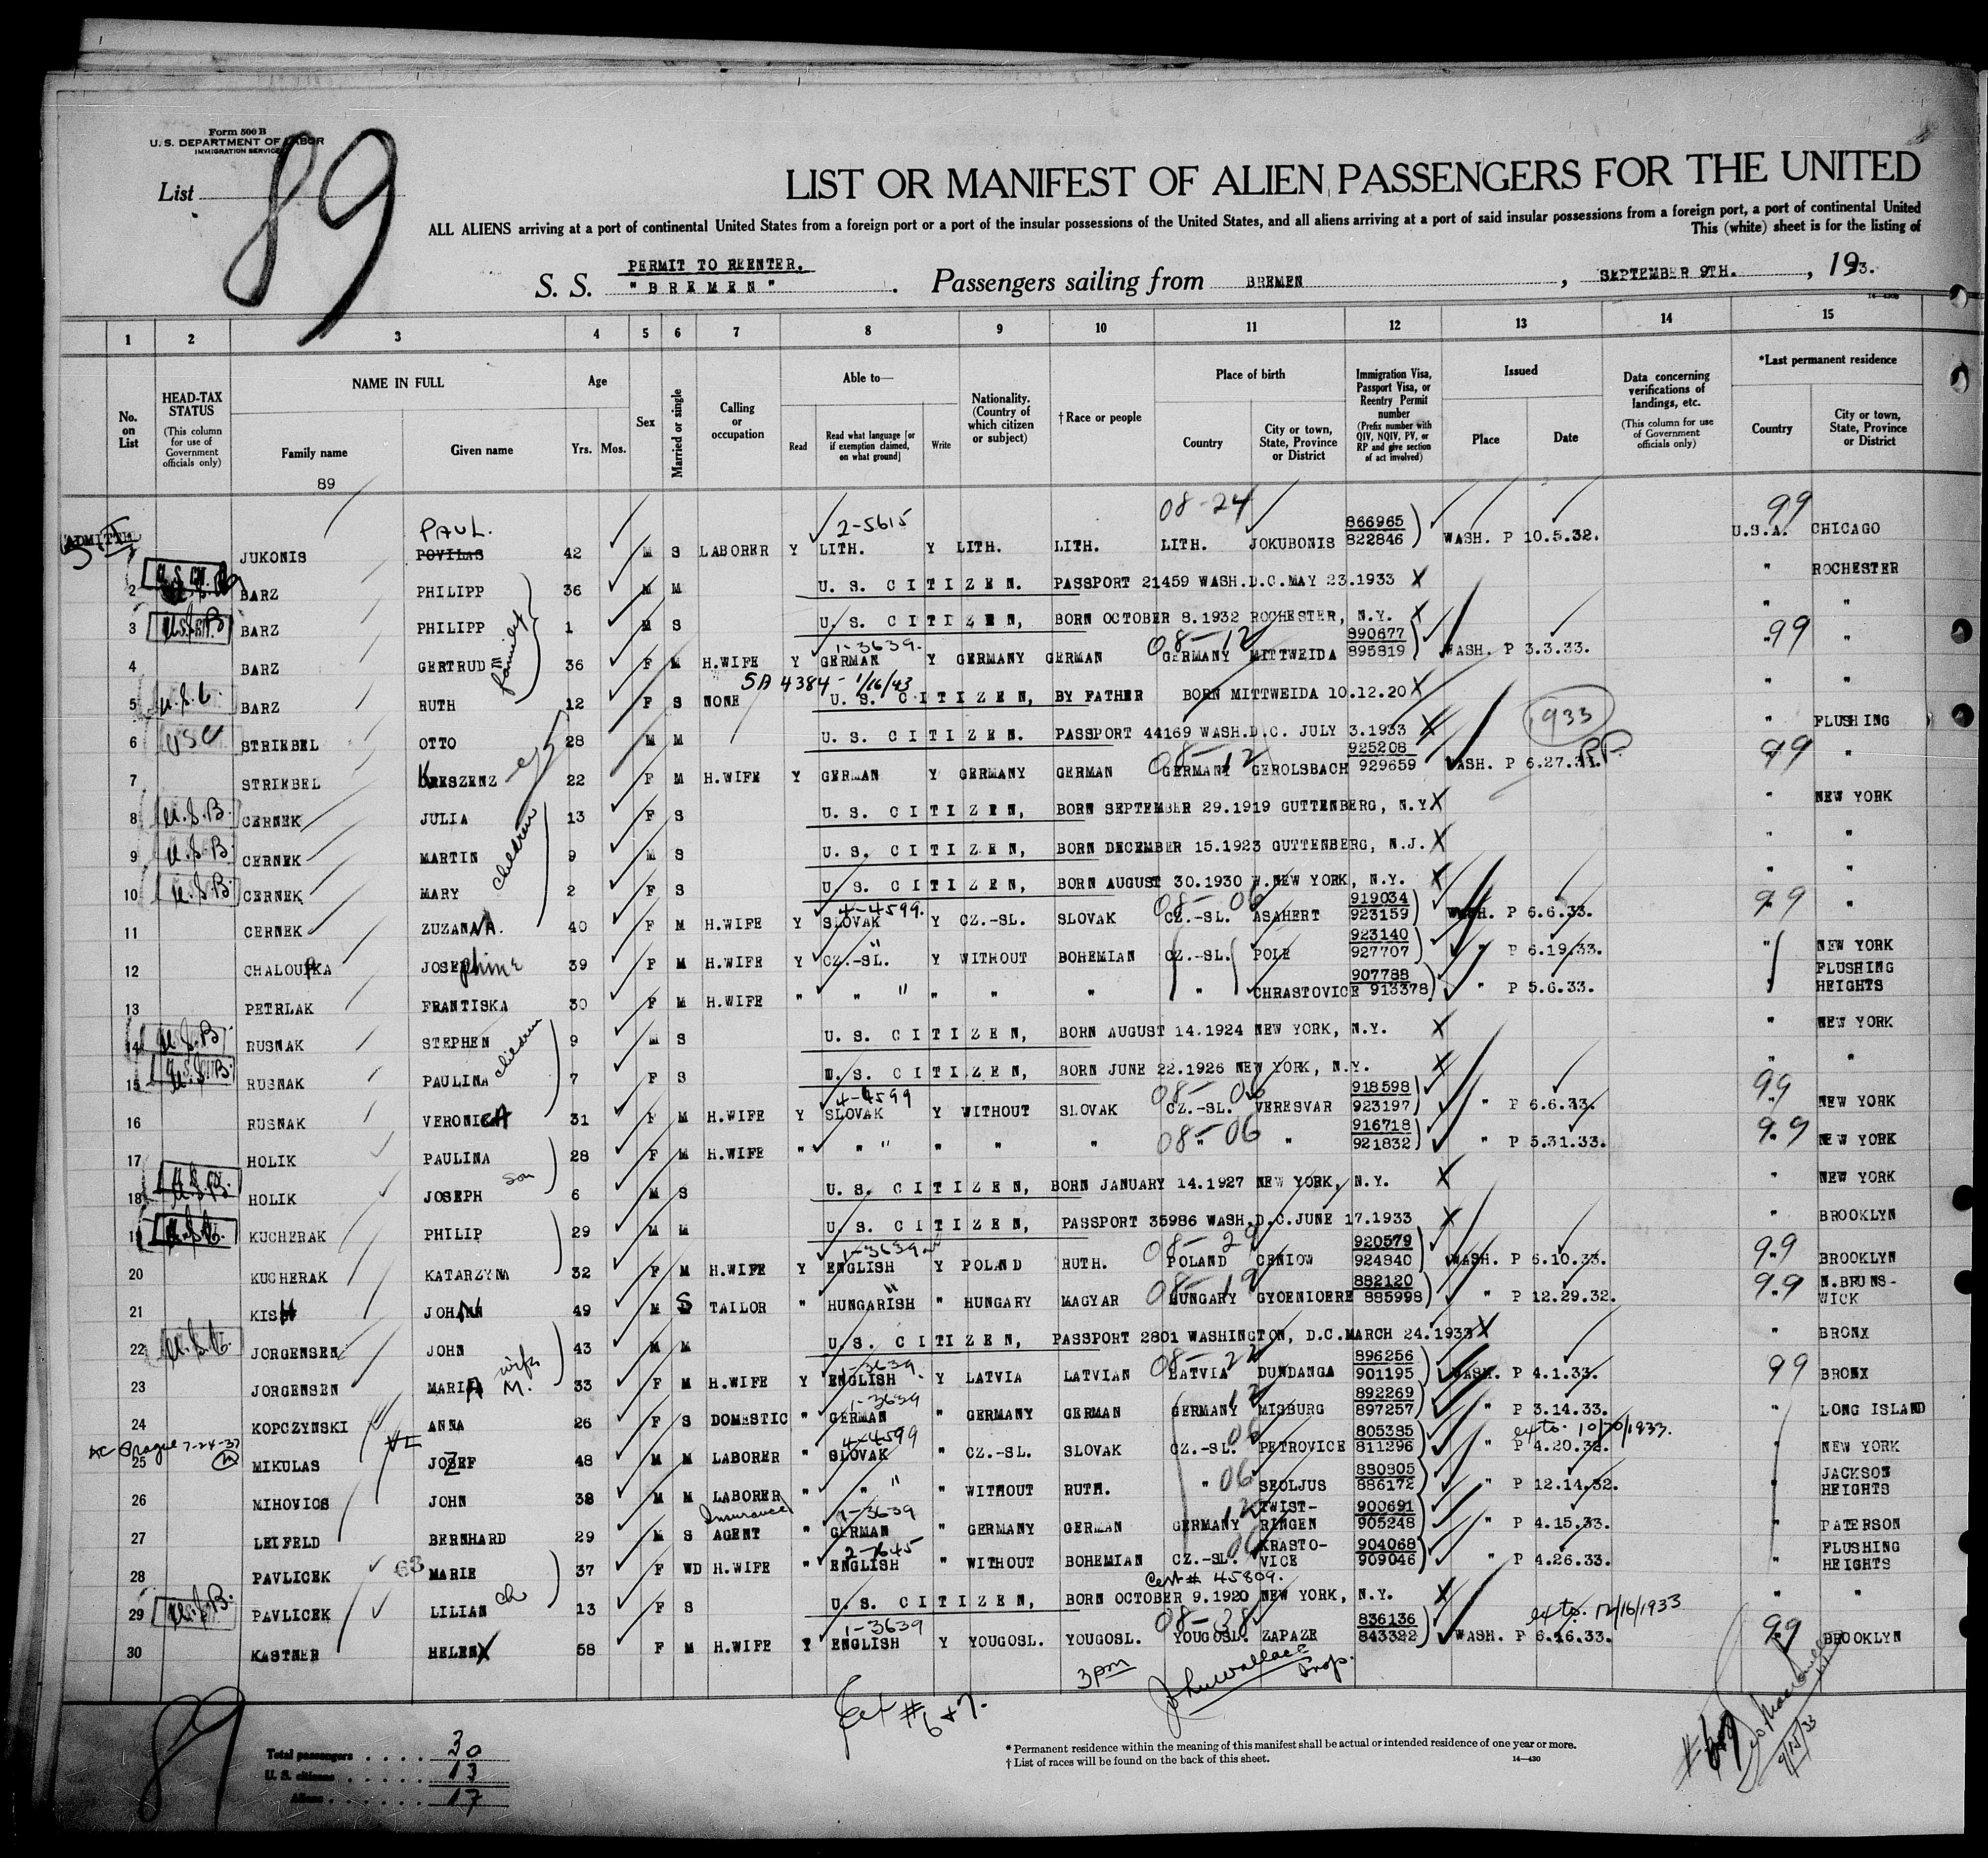 Form 500 B
U. S. DEPARTMENT OF LABOR
IMMIGRATION SERVICE
List
89
LIST OR MANIFEST OF ALIEN PASSENGERS FOR THE UNITED
ALL ALIENS arriving at a port of continental United States from a foreign port or a port of the insular possessions of the United States, and all aliens arriving at a port of said insular possessions from a foreign port, a port of continental United
This (white) sheet is for the listing of
PERMIT TO REENTER.
S. S. "BREMEN" Passengers sailing from BREMEN, SEPTEMBER 9TH., 1933.
14-430
1 2 3 4 5 6 7 8 9 10 11 12 13 14 15
No. on List
HEAD-TAX STATUS (This column for use of Government officials only)
NAME IN FULL Family name Given name
Age Yrs. Mos.
Sex
Married or single
Calling or occupation
Able to— Read Read what language [or if exemption claimed, on what ground] Write
Nationality. (Country of which citizen or subject)
†Race or people
Place of birth Country City or town, State, Province or District
Immigration Visa, Passport Visa, or Reentry Permit number (Prefix number with QIV, NQIV, PV, or RP and give section of act involved)
Issued Place Date
Data concerning verifications of landings, etc. (This column for use of Government officials only)
*Last permanent residence Country City or town, State, Province or District
89
ADMITTED PAUL. 2-5615 08-24 866965 99
JUKONIS POVILAS 42 M S LABORER Y LITH. Y LITH. LITH. LITH. JOKUBONIS 822846 WASH. P 10.5.32. U.S.A. CHICAGO
2 BARZ PHILIPP 36 M M U. S. CITIZEN. PASSPORT 21459 WASH.D.C.MAY 23.1933 X " ROCHESTER
3 BARZ PHILIPP 1 M S U. S. CITIZEN, BORN OCTOBER 8.1932 ROCHESTER, N.Y. X " "
family 1-3639. 08-12 890677 99
4 BARZ GERTRUD 36 F M H.WIFE Y GERMAN Y GERMANY GERMAN GERMANY MITTWEIDA 895819 WASH. P 3.3.33. " "
SA 4384 - 1/16/43
5 U.S.C. BARZ RUTH 12 F S NONE U. S. CITIZEN, BY FATHER BORN MITTWEIDA 10.12.20 X " "
933
6 USC STRIEBEL OTTO 28 M M U. S. CITIZEN. PASSPORT 44169 WASH.D.C. JULY 3.1933 X " FLUSHING
08-12 925208 R.P. 99
7 STRIEBEL KRESZENZ 22 F M H.WIFE Y GERMAN Y GERMANY GERMAN GERMANY GEROLSBACH 929659 WASH. P 6.27.33. "
8 U.S.B. CERNEK JULIA 13 F S U. S. CITIZEN, BORN SEPTEMBER 29.1919 GUTTENBERG, N.Y X " NEW YORK
children
9 U.S.B. CERNEK MARTIN 9 M S U. S. CITIZEN, BORN DECEMBER 15.1923 GUTTENBERG, N.J. X " "
10 U.S.B. CERNEK MARY 2 F S U. S. CITIZEN, BORN AUGUST 30.1930 W.NEW YORK, N.Y. X " "
4-4599. 08-06 919034 99
11 CERNEK ZUZANNA. 40 F M H.WIFE Y SLOVAK Y CZ.-SL. SLOVAK CZ.-SL. ASAHERT 923159 WASH. P 6.6.33. "
923140
12 CHALOUPKA JOSEphine 39 F M H.WIFE Y CZ.-SL. Y WITHOUT BOHEMIAN CZ.-SL. POLE 927707 " P 6.19.33. " NEW YORK
907788 FLUSHING
13 PETRLAK FRANTISKA 30 F M H.WIFE " " " " " " CHRASTOVICE 913378 " P 5.6.33. " HEIGHTS
14 U.S.B. RUSNAK STEPHEN 9 M S U. S. CITIZEN, BORN AUGUST 14.1924 NEW YORK, N.Y. X " NEW YORK
children
15 U.S.B. RUSNAK PAULINA 7 F S U. S. CITIZEN, BORN JUNE 22.1926 NEW YORK, N.Y. X " "
4-4599 08-06 918598 99
16 RUSNAK VERONICA 31 F M H.WIFE Y SLOVAK Y WITHOUT SLOVAK CZ.-SL. VERESVAR 923197 " P 6.6.33. NEW YORK
08-06 916718 99
17 HOLIK PAULINA 28 F M H.WIFE " " " " " " " 921832 " P 5.31.33. " NEW YORK
son
18 U.S.B. HOLIK JOSEPH 6 M S U. S. CITIZEN, BORN JANUARY 14.1927 NEW YORK, N.Y. X " NEW YORK
19 KUCHERAK PHILIP 29 M M U. S. CITIZEN, PASSPORT 35986 WASH.D.C.JUNE 17.1933 X " BROOKLYN
1-3639 08-29 920579 99
20 KUCHERAK KATARZYNA 32 F M H.WIFE Y ENGLISH Y POLAND RUTH. POLAND CENIOW 924840 WASH. P 6.10.33. " BROOKLYN
" 08-19 882120 99 N.BRUNS-
21 KISH JOHN 49 M S TAILOR " HUNGARISH " HUNGARY MAGYAR HUNGARY GYOENIOERE 885998 " P 12.29.32. " WICK
22 U.S.C. JORGENSEN JOHN 43 M M U. S. CITIZEN, PASSPORT 2801 WASHINGTON, D.C.MARCH 24.1933 X " BRONX
wife 1-3639. 08-22 896256 99
23 JORGENSEN MARIA M. 33 F M H.WIFE Y ENGLISH Y LATVIA LATVIAN LATVIA DUNDANGA 901195 WASH. P 4.1.33. BRONX
1-3639 12 892269
24 KOPCZYNSKI ANNA 26 F S DOMESTIC " GERMAN " GERMANY GERMAN GERMANY MISBURG 897257 " P 3.14.33. " LONG ISLAND
Prague 7-24-37 4-4599 06 805385 ex to. 10/20/1933.
25 MIKULAS JOZEF 48 M M LABORER " SLOVAK " CZ.-SL. SLOVAK CZ.-SL. PETROVICE 811296 " P 4.20.32. " NEW YORK
06 880805 JACKSON
26 MIHOVICS JOHN 38 M M LABORER " " " WITHOUT RUTH. " SEOLJUS 886172 " P 12.14.32. " HEIGHTS
Insurance 1-3639 12 TWIST- 900691
27 LEIFELD BERNHARD 29 M S AGENT " GERMAN " GERMANY GERMAN GERMANY RINGEN 905248 " P 4.15.33. " PATERSON
63 2-7645 06 KRASTO- 904068 FLUSHING
28 PAVLICEK MARIE 37 F WD H.WIFE " ENGLISH " WITHOUT BOHEMIAN CZ.-SL. VICE 909046 " P 4.26.33. " HEIGHTS
ch Cert # 45809.
29 U.S.B. PAVLICEK LILIAN 13 F S U. S. CITIZEN, BORN OCTOBER 9.1920 NEW YORK, N.Y. X " "
1-3639 08-38 836136 ex to. 12/16/1933 99
30 KASTNER HELEN 58 F M H.WIFE Y ENGLISH Y YOUGOSL. YOUGOSL. YOUGOSL. ZAPAZE 843322 WASH. P 6.16.33. " BROOKLYN
3pm John Wallace Insp.
Ext # 6 & 7.
89
Total passengers . . . . 30
U. S. citizens . . . . . . 13
Aliens . . . . . . 17
* Permanent residence within the meaning of this manifest shall be actual or intended residence of one year or more.
† List of races will be found on the back of this sheet.
14-430
9/15/33